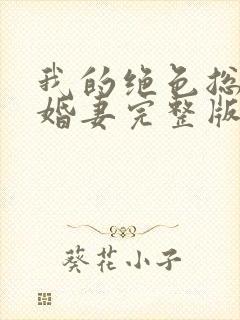 我的绝色总
婚妻完整版
葵花小子